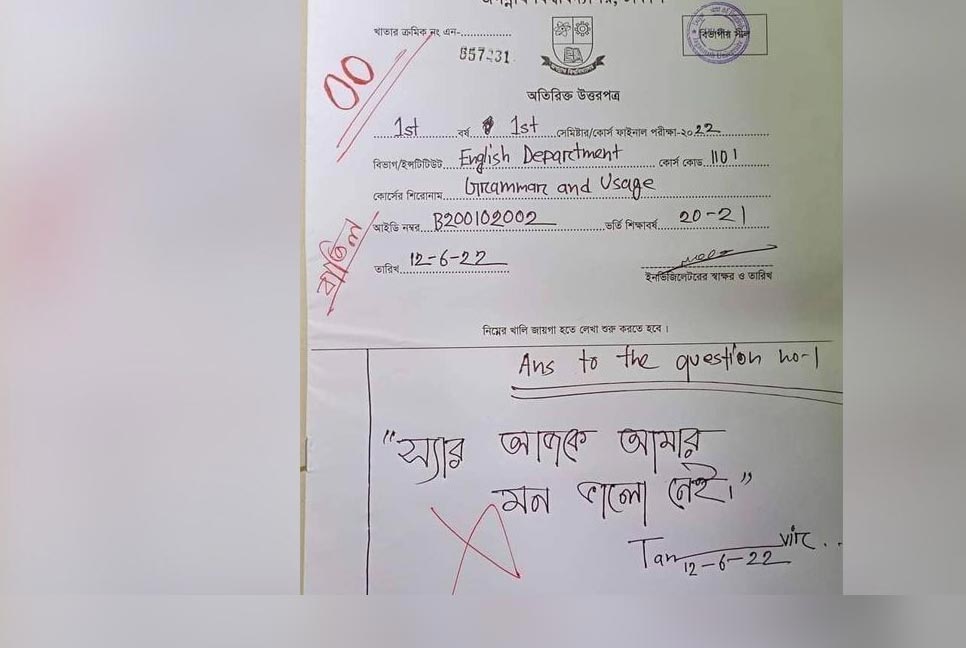 খাতার ক্রমিক নং এন-
657231
বিভাগীয় সীল
অতিরিক্ত উত্তরপত্র
00
1st বর্ষ 1st সেমিষ্টার/কোর্স ফাইনাল পরীক্ষা-২০২2
বিভাগ/ইন্সটিটিউট English Department কোর্স কোড 1101
কোর্সের শিরোনাম Grammar and Usage
আইডি নম্বর B200102002 ভর্তি শিক্ষাবর্ষ 20-21
বাতিল
তারিখ 12-6-22
ইনভিজিলেটরের স্বাক্ষর ও তারিখ
নিম্নের খালি জায়গা হতে লেখা শুরু করতে হবে।
Ans to the question no-1
"স্যার আজকে আমার
মন ভালো নেই।"
Tanvir..
12-6-22